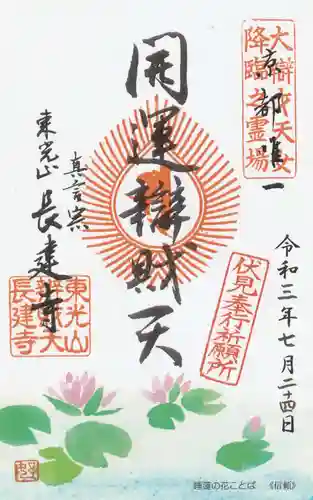 大辯才天女
降臨之霊場
京都唯一
開運辯財天
令和三年七月二十四日
真言宗
東光山
長建寺
伏見奉行祈願所
東光山
辨財天
長建寺
睡蓮の花ことば 《信頼》